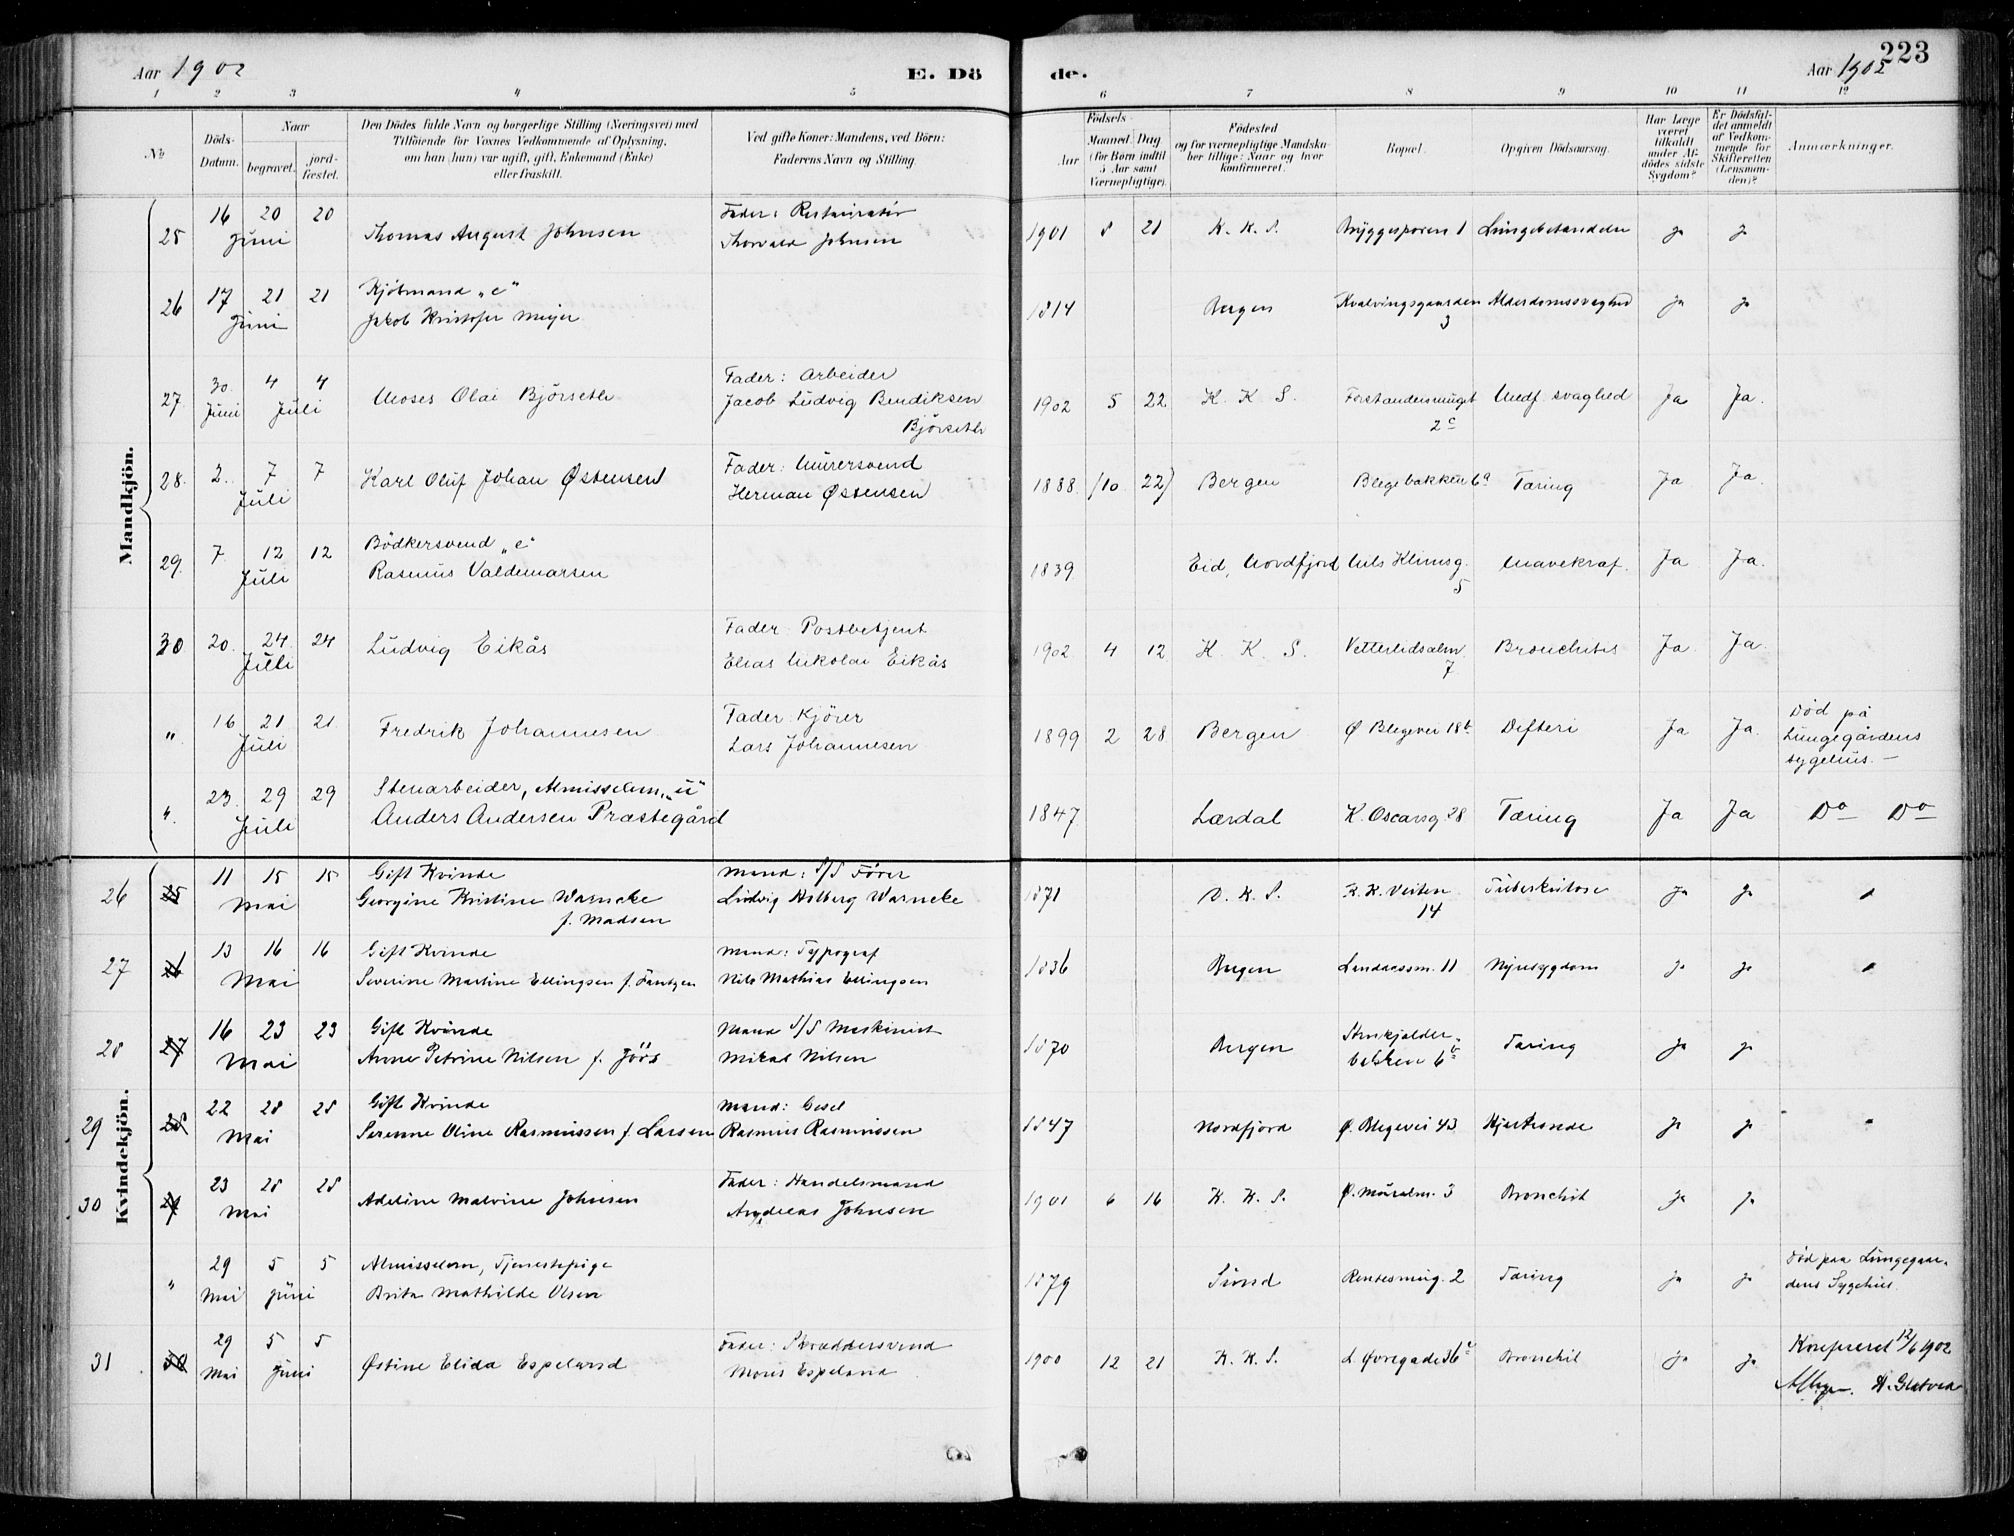 223
Aar 1902 E. Dö de. Aar 1902
1 2 3 4 5 6 7 8 9 10 11 12
No
Döds-Datum.
Naar
begravet.
jord-fæstet.
Den Dödes fulde Navn og borgerlige Stilling (Næringsvei) med
Tilföiende for Voxnes Vedkommende af Oplysning,
om han (hun) var ugift, gift, Enkemand (Enke)
eller fraskilt.
Ved gifte Koner: Mandens, ved Börn:
Faderens Navn og Stilling.
Födsels-
Aar
Maaned
Dag
(for Börn indtil
5 Aar samt
Værnepligtige).
Födested
og for værnepligtige Mandskaber tillige: Naar og hvor
konfirmeret.
Bopæl.
Opgiven Dödsaarsag.
Har Læge
været
tilkaldt
under Afdödes sidste
Sygdom?
Er Dödsfaldet anmeldt
af Vedkommende for
Skifteretten
(Lensmanden)?
Anmærkninger.
Mandkjön.
25 16 Juni 20 20 Thomas August Johnsen Fader: Restauratör Thorvald Johnsen 1901 8 21 K. K. S. Bryggesporen 1 Lungebetændelse ja ja
26 17 Juni 21 21 Kjöbmand „e“ Jakob Kristofer Meyer 1814 Bergen Kvalvingsgaarden 3 Alderdomssvaghed ja ja
27. 30. Juni 4 Juli 4 Moses Olai Björseth Fader: Arbeider Jacob Ludvig Bendiksen Björseth 1902 5 22 K. K. S. Forstandersmuget 2c Medf. svaghed Ja Ja.
28. 2. Juli 7 7 Karl Oluf Johan Østensen Fader: Murersvend Herman Østensen 1888. (10. 22) Bergen Blegebakken 6a Tæring Ja Ja.
29. 7. Juli 12 12 Bödkersvend „e“ Rasmus Valdemarsen 1839. Eid, Nordfjord Nils Klimsg. 5 Mavekræf. Ja Ja.
30 20. Juli 24 24 Ludvig Eikås Fader: Postbetjent Elias Nikolai Eikås 1902. 4 12 K. K. S. Vetterlidsalm. 7. Bronchitis Ja Ja.
„. 16 Juli 21 21. Fredrik Johannesen Fader: Kjörer Lars Johannesen 1899 2 28 Bergen Ø Blegevei 18b. Difteri Ja Ja. Död på Lungegårdens sygehus. —
„. 23. Juli 29 29 Stenarbeider, Almisselem, „u“ Anders Andersen Præstegård 1847. Lærdal K. Oscarsg. 28 Tæring Ja Ja Do Do
Kvindekjön.
26 25 11 Mai 15 15 Gift Kvinde Georgine Kristine Warncke f. Madsen Mand: S/S Förer Ludvig Holberg Warncke 1871 D. K. S. K. K. Veiten 14 Tuberkulose ja ja
27 26 13 Mai 16 16 Gift Kvinde Severine Martine Ellingsen f. Jantzen Mand: Typograf Nils Mathias Ellingsen 1836 Bergen Landaassm. 11 Nyresygdom ja ja
28 27 16 Mai 23 23 Gift Kvinde Anne Petrine Nilsen f. Jörs Mand S/S Maskinist Mikal Nilsen 1870 Bergen Stenkjelder-bakken 6b Tæring ja ja
29 28 22 Mai 28 28 Gift Kvinde Serenne Oline Rasmussen f. Larsen Mand: Gesel Rasmus Rasmussen 1847 Nordfjord Ø. Blegevei 43 Hjerteonde ja ja
30 29 23 Mai 28 28 Adeline Malvine Johnsen Fader: Handelsmand Andreas Johnsen 1901 6 16 K. K. S. Ø. Muralm. 3 Bronchit ja ja
„ 29 Mai 5 Juni 5 Almisselem, Tjenestepige Brita Mathilde Olsen 1879 Sund Rentesmug. 2 Tæring ja ja Död paa Lungegaardens Sygehus.
31 30 29 Mai 5 Juni 5 Østine Elida Espeland Fader: Skræddersvend Mons Espeland 1900 12 21 K. K. S. L. Øvregade 36c Bronchit ja ja Konfereret 12/6 1902